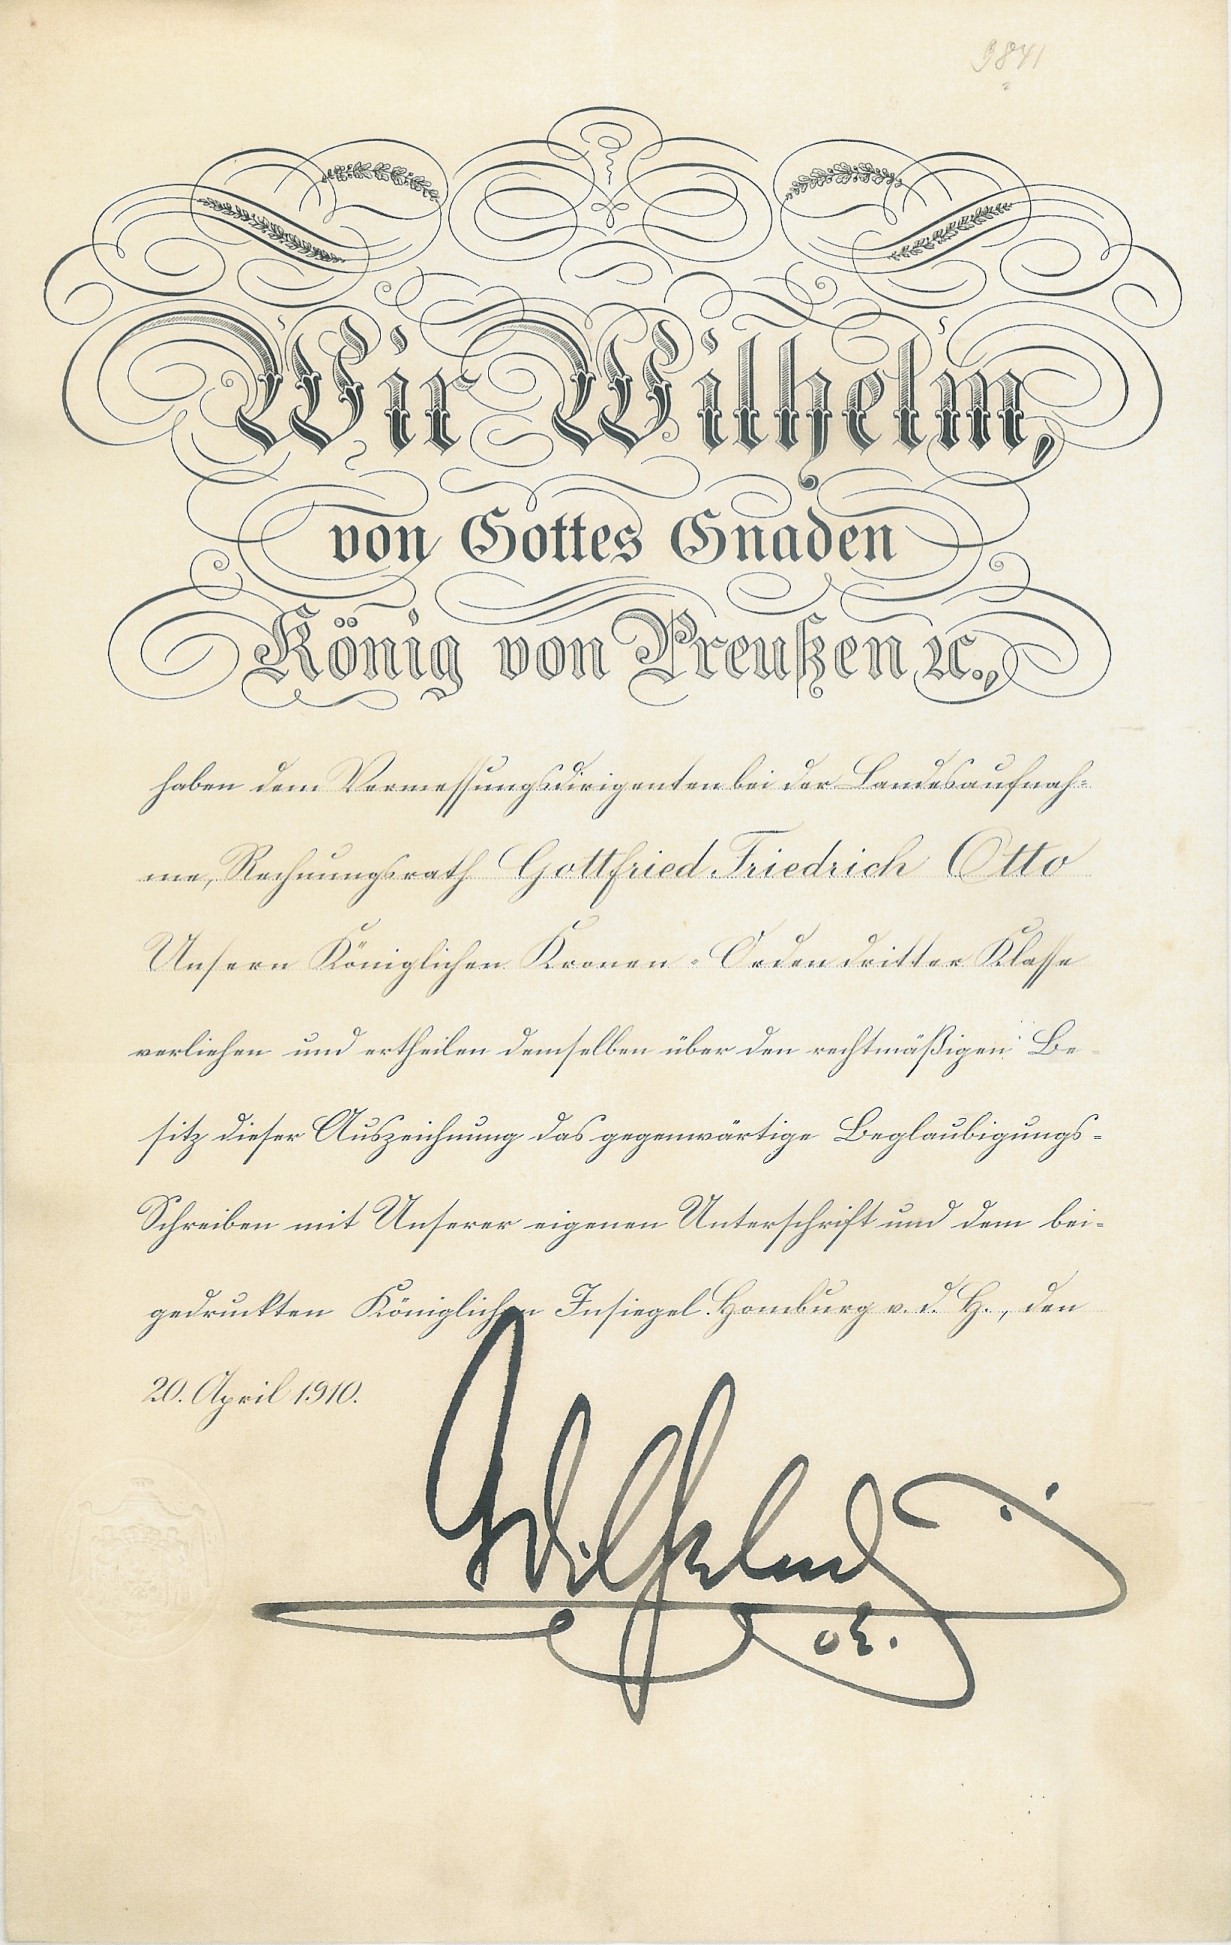 9841
Wir Wilhelm,
von Gottes Gnaden
König von Preußen ꝛc.,
haben dem Vermessungsdirigenten bei der Landesaufnah-
me, Rechnungsrath Gottfried Friedrich Otto
Unsern Königlichen Kronen-Orden dritter Klasse
verliehen und ertheilen demselben über den rechtmäßigen Be-
sitz dieser Auszeichnung das gegenwärtige Beglaubigungs-
Schreiben mit Unserer eigenen Unterschrift und dem bei-
gedruckten Königlichen Insiegel. Homburg v. d. H., den
20. April 1910.
Wilhelm